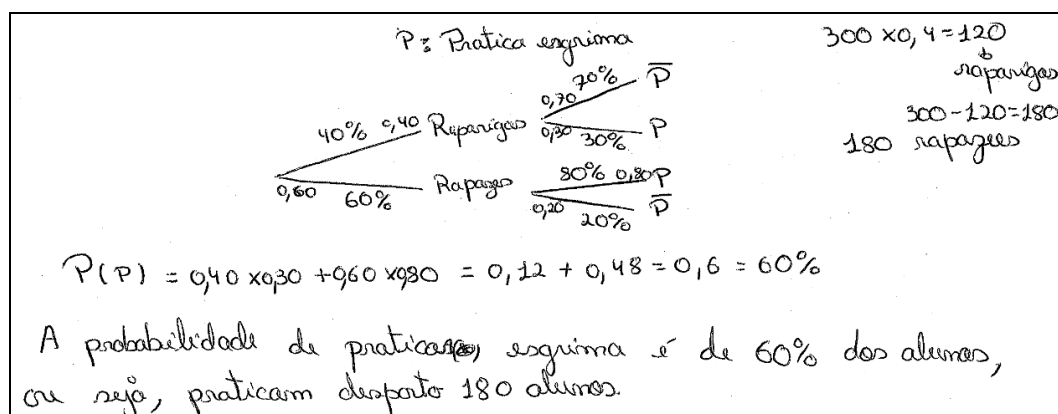 P: Pratica esgrima
300 x0,4=120
raparigas
300-120=180
180 rapazes
70% P̅
0,70
40% 0,40 Raparigas
0,30 30% P
80% 0,80 P
0,60 60% Rapazes
0,20 20% P̅
P(P) = 0,40 x0,30 +0,60 x0,80 = 0,12 + 0,48 = 0,6 = 60%
A probabilidade de praticar, esgrima é de 60% dos alunos,
ou seja, praticam desporto 180 alunos.